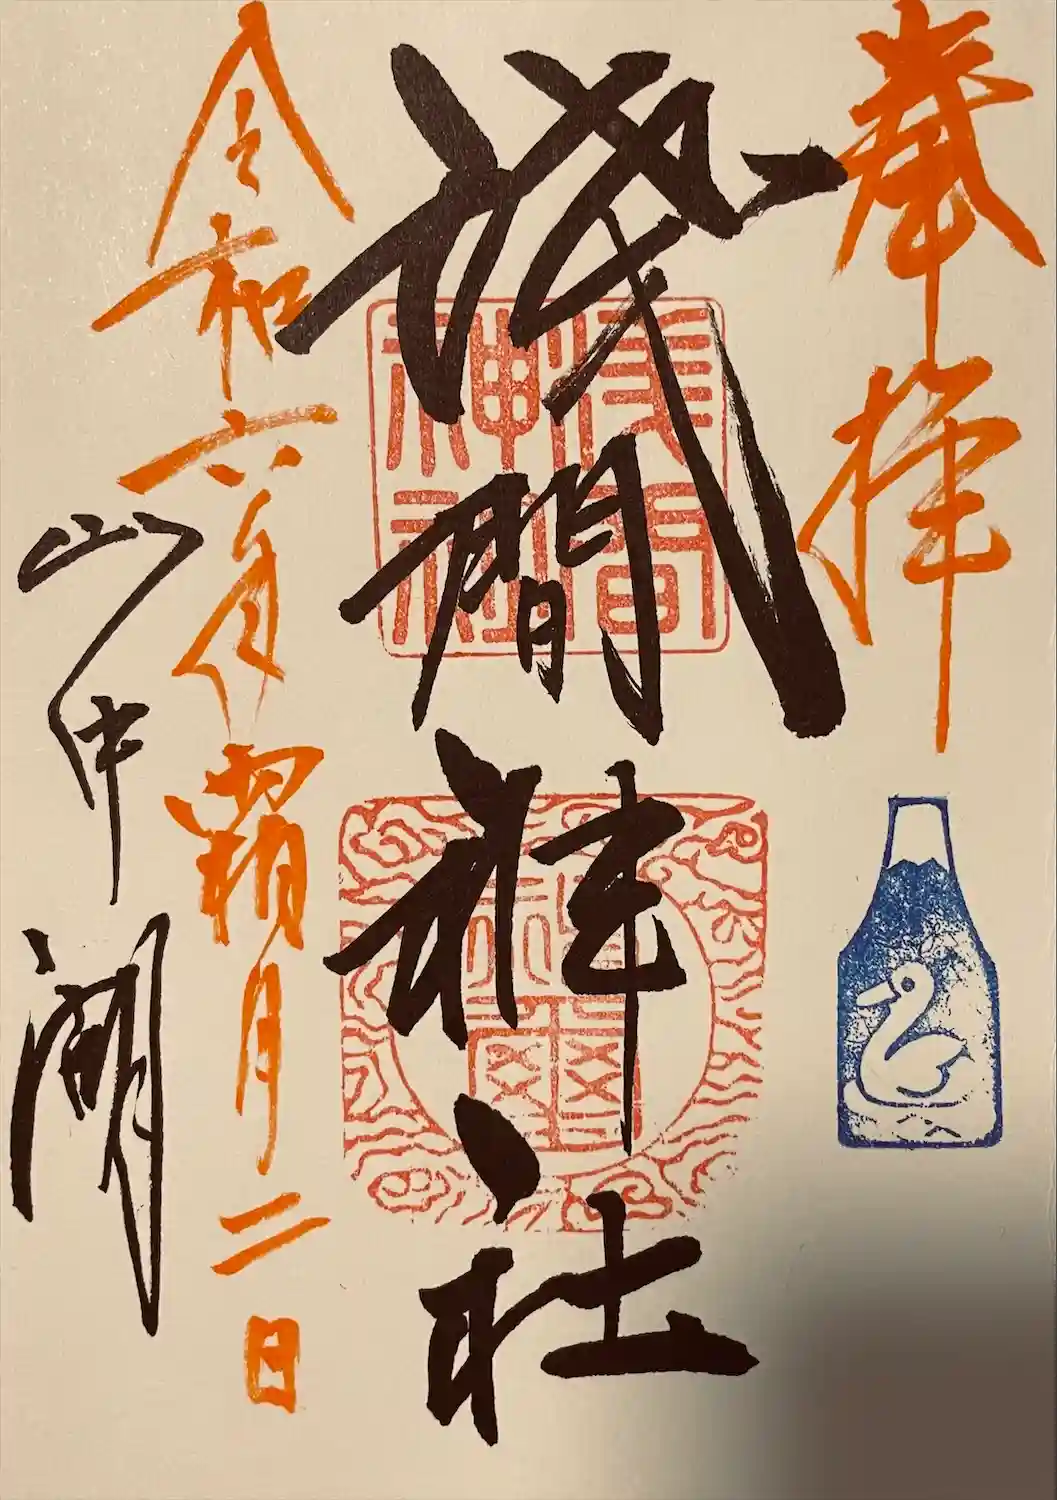 奉拝
浅間神社
令和六年霜月二日
山中湖
浅間
神社